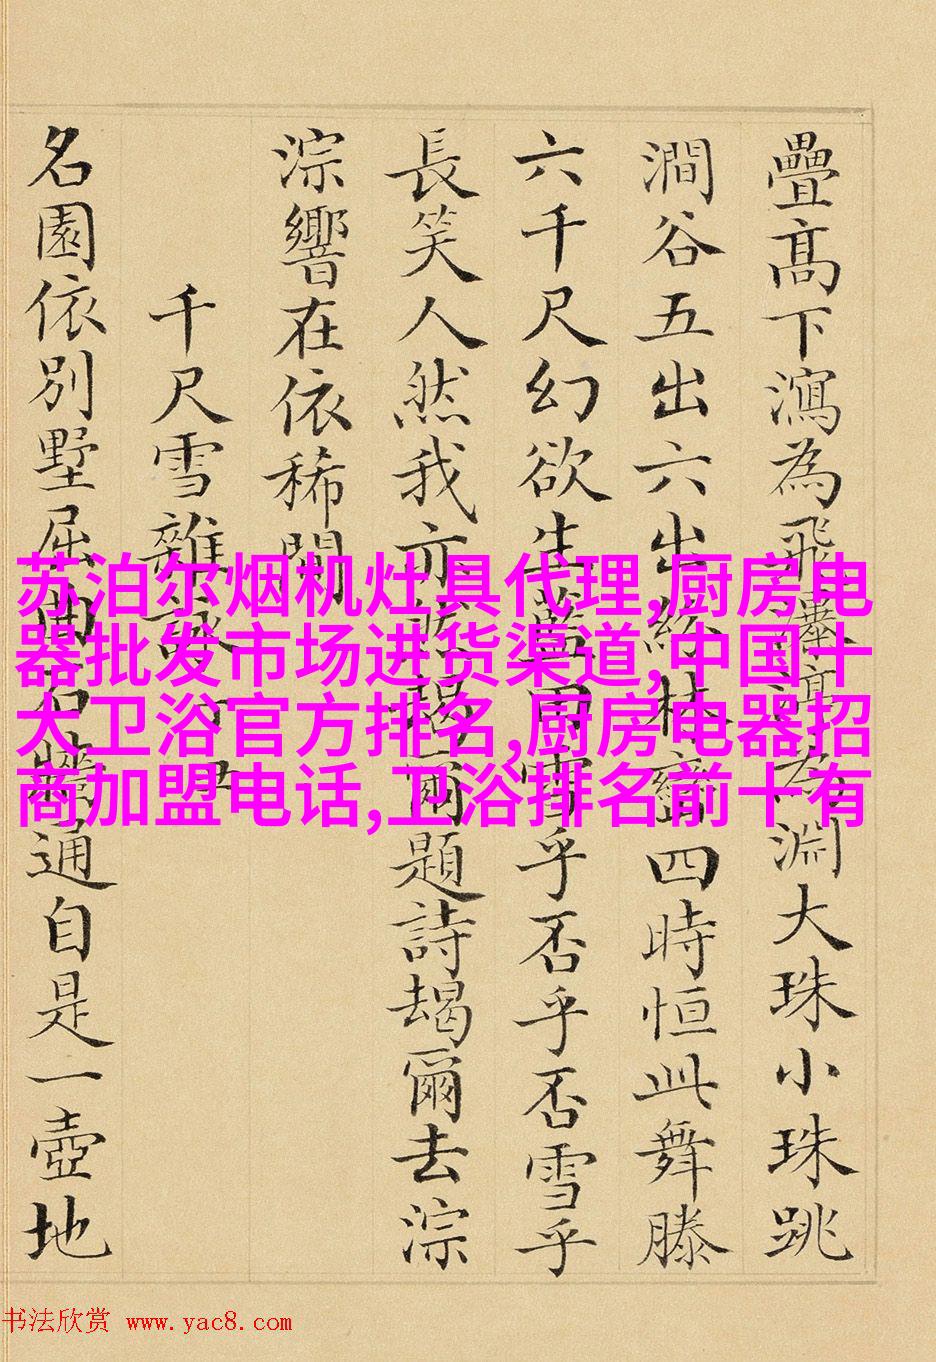 疊高下瀉為飛瀑渟為淵大珠小珠跳
澗谷五出六出綴林巒四時恒此舞滕
六千尺幻欲生藍田雪乎否乎否雪乎
長笑人然我亦然揭爾題詩朅爾去淙
淙響在依稀閒
千尺雪雜詠
名園依別墅屈曲石牆通自是一壺地
苏泊尔烟机灶具代理,厨房电
器批发市场进货渠道,中国十
大卫浴官方排名,厨房电器招
商加盟电话,卫浴排名前十有
书法欣赏 www.yac8.com